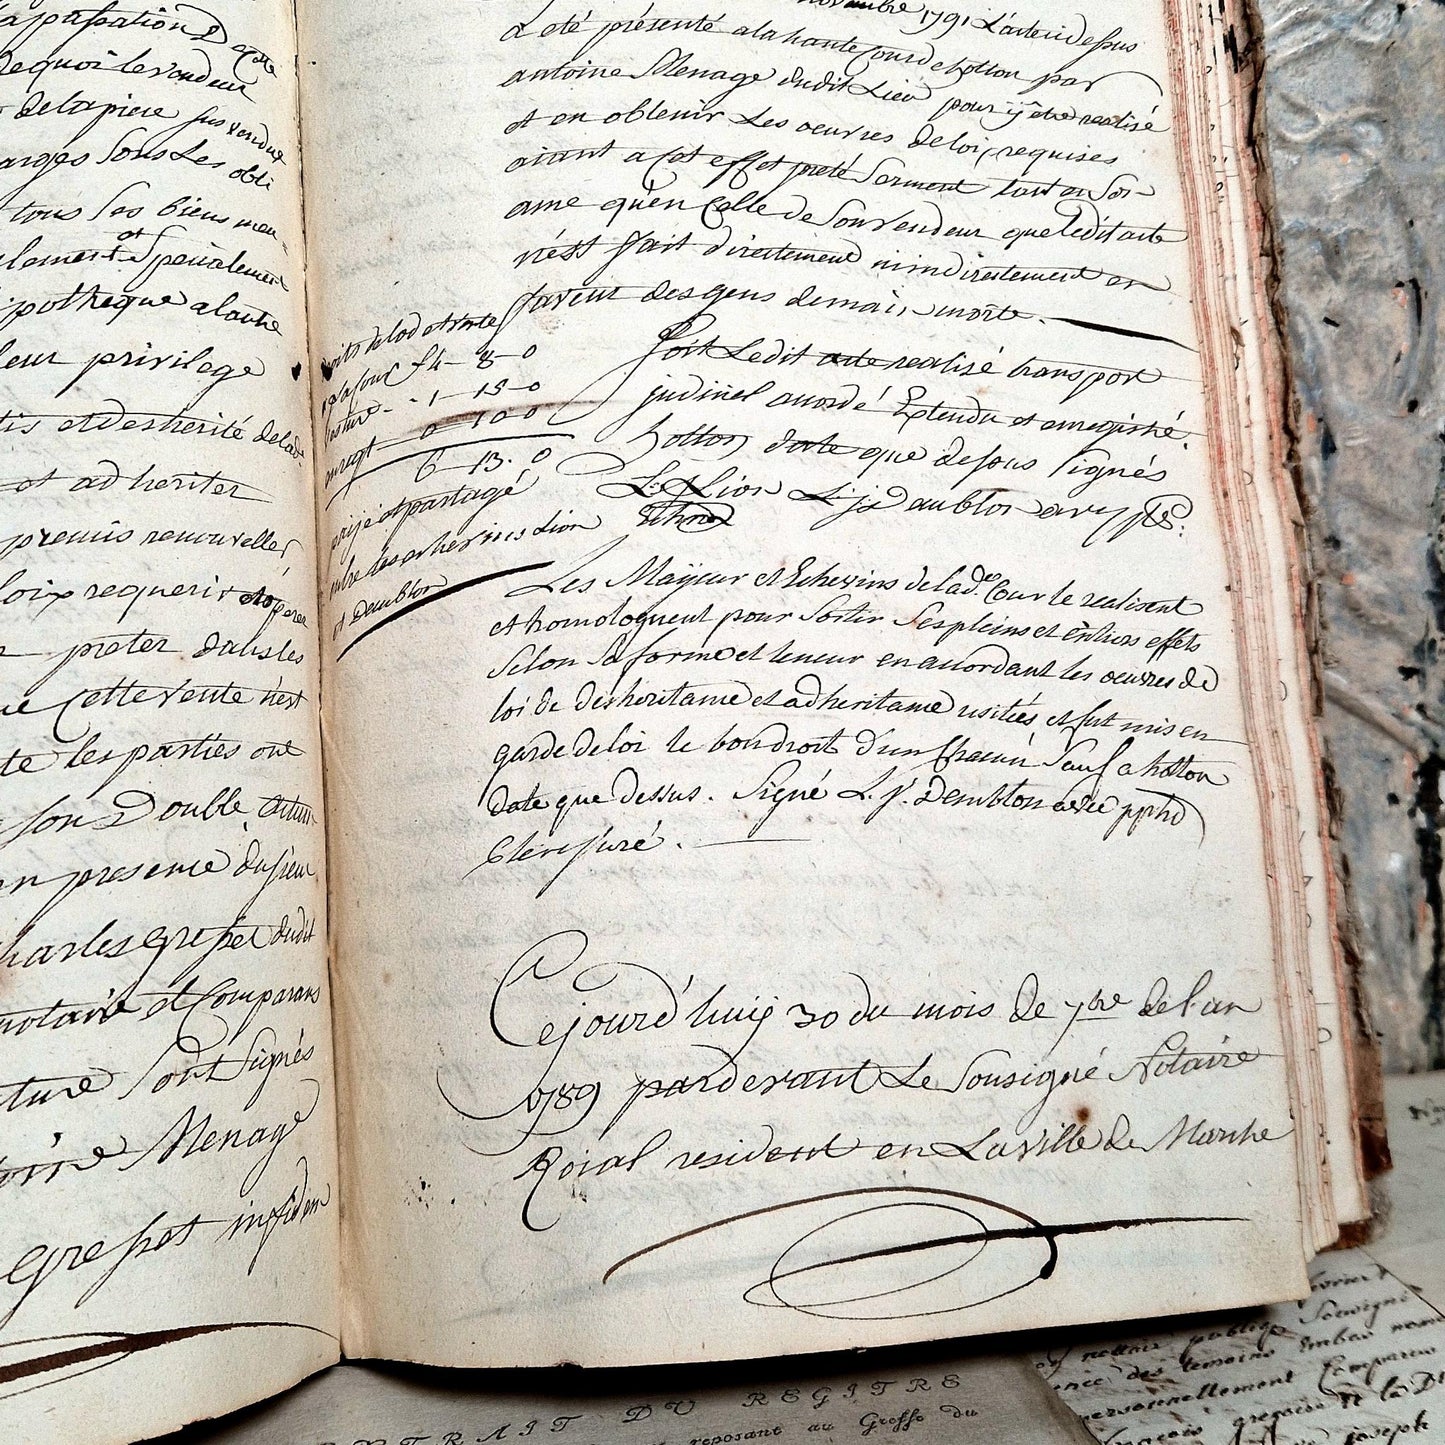 apassation D acte
de quoi le vendeur
de la piece sus vendue
arges sous les obli
tous ses biens meu=
lement et Specialement
ipotheque a lautre
leur privilege
tis et desherité de lad.
et adheriter
premis renouveller
loix requerir et operer
preter dans les
ue Cette vente n'est
te les parties ont
son Double
en presence du sieur
harles gresset dudit
notaire et Comparans
ture sont signés
Menage
gresset in fidem
novembre 1791 L'acte ci dessus
a été présenté a la haute Cour de hotton par
antoine Menage dudit Lieu pour ÿ être realisé
et en obtenir Les oeuvres de loix requises
aiant a cet effet preté Serment tant en Son
ame qu'en Celle de Son Vendeur que ledit acte
n'est fait directement ni indirectement en
faveur des gens de main morte.
Soit Ledit acte realisé transport
judiciel accordé Extendu et enregistré.
hotton date que desous signés
L: Lion L: j: Demblon avec pp:
Echev
droits de lod et vente
f 4 - 8 - 0
- 1 - 15 - 0
enregt - 0 - 10 - 0
6 - 13 - 0
et partagé
entre les echevins Lion
et Demblon
Les Maÿeur et Echevins de lad.e Cour le realisent
et homologuent pour Sortir Ses pleins et entiers effets
Selon Sa forme et teneur en accordant les oeuvres de
loi de desheritance et adheritance usitées et fut mis en
garde de loi le bon droit d'un Chacun Sauf a hotton
date que dessus. Signé L. j. Demblon avec pph
Clercq juré.
Cejourd'huÿ 30 du mois de 7bre de l'an
1789 pardevant Le Sousigné Notaire
Roial resident en La Ville de Marche
EXTRAIT DU REGITRE
reposant au Greffe du
fevrier
notaire publicq Souvigné
ence des temoins Embas nom
personnellement Comparus
françois gregoire de la D
joseph